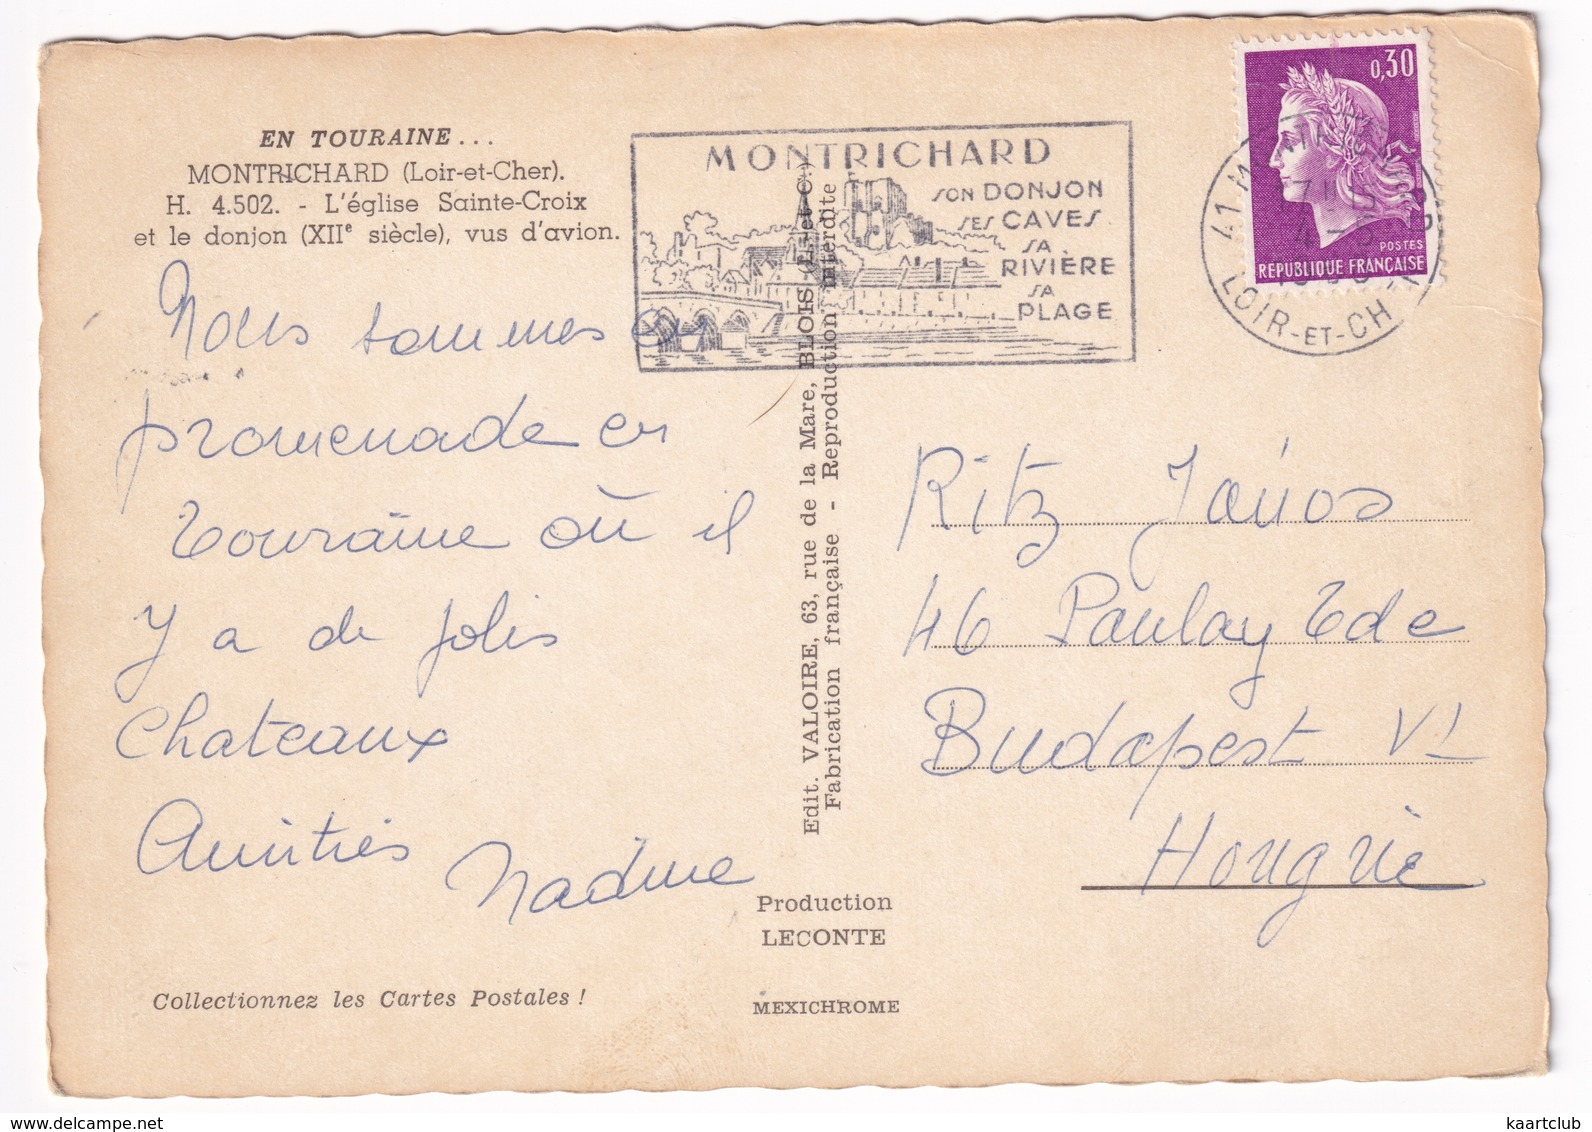 EN TOURAINE...
MONTRICHARD (Loir-et-Cher).
H. 4.502. - L'église Sainte-Croix
et le donjon (XIIe siècle), vus d'avion.
Nous sommes en
promenade en
Touraine où il
y a de jolis
chateaux
Amitiés Nadine
Collectionnez les Cartes Postales !
Edit. VALOIRE, 63, rue de la Mare, BLOIS (L.-et-C.)
Fabrication française - Reproduction interdite
Production
LECONTE
MEXICHROME
MONTRICHARD
SON DONJON
SES CAVES
SA
RIVIÈRE
SA
PLAGE
0,30
POSTES
REPUBLIQUE FRANÇAISE
41
LOIR-ET-CH
Ritz János
46 Paulay Ede
Budapest VI
Hongrie
kaartclub